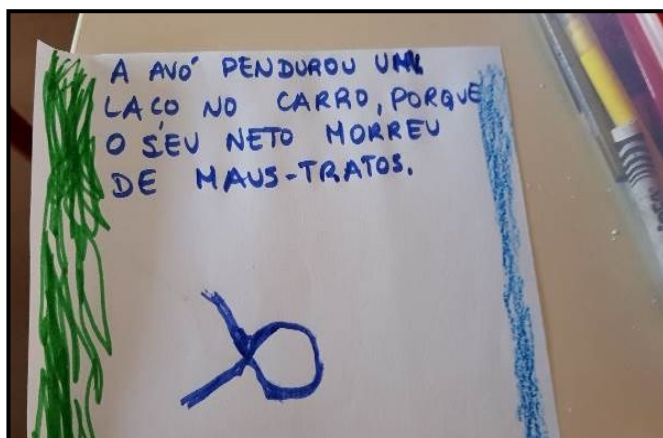 A AVÓ PENDUROU UM
LAÇO NO CARRO, PORQUE
O SEU NETO MORREU
DE MAUS-TRATOS.